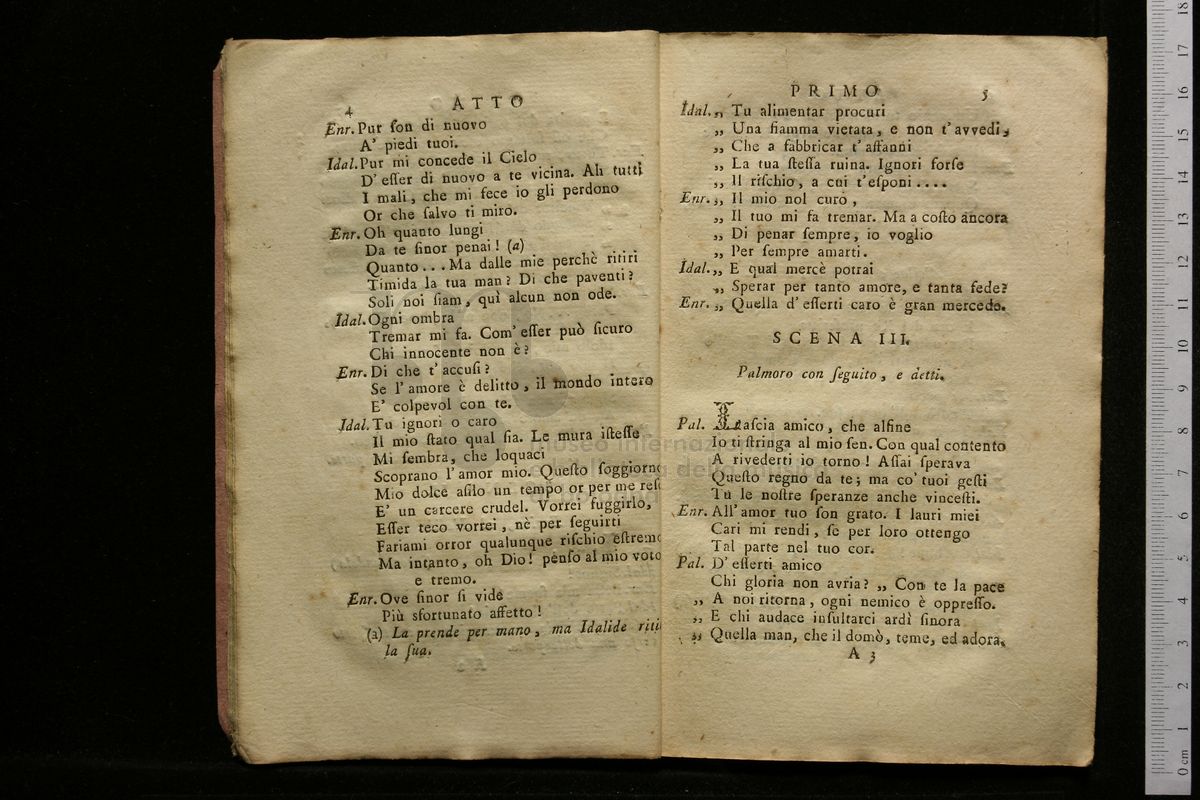 4 ATTO
Enr. Pur ſon di nuovo
A' piedi tuoi.
Idal. Pur mi concede il Cielo
D' eſſer di nuovo a te vicina. Ah tutti
I mali, che mi fece io gli perdono
Or che ſalvo ti miro.
Enr. Oh quanto lungi
Da te finor penai! (a)
Quanto... Ma dalle mie perchè ritiri
Timida la tua man? Di che paventi?
Soli noi ſiam, quì alcun non ode.
Idal. Ogni ombra
Tremar mi fa. Com' eſſer può ſicuro
Chi innocente non è?
Enr. Di che t' accuſi?
Se l' amore è delitto, il mondo intero
E' colpevol con te.
Idal. Tu ignori o caro
Il mio ſtato qual ſia. Le mura iſteſſe
Mi ſembra, che loquaci
Scoprano l' amor mio. Queſto ſoggiorno
Mio dolce aſilo un tempo or per me reſ
E' un carcere crudel. Vorrei fuggirlo,
Eſſer teco vorrei, nè per ſeguirti
Fariami orror qualunque riſchio eſtremo
Ma intanto, oh Dio! penſo al mio voto
e tremo.
Enr. Ove finor ſi vide
Più sfortunato affetto!
(a) La prende per mano, ma Idalide riti
la ſua.
PRIMO 5
Idal. „ Tu alimentar procuri
„ Una fiamma vietata, e non t' avvedi,
„ Che a fabbricar t' affanni
„ La tua ſteſſa ruina. Ignori forſe
„ Il riſchio, a cui t' eſponi....
Enr. „ Il mio nol curo,
„ Il tuo mi fa tremar. Ma a coſto ancora
„ Di penar ſempre, io voglio
„ Per ſempre amarti.
Idal. „ E qual mercè potrai
„ Sperar per tanto amore, e tanta fede?
Enr. „ Quella d' eſſerti caro è gran mercede.
SCENA III.
Palmoro con ſeguito, e detti.
Pal. Laſcia amico, che alfine
Io ti ſtringa al mio ſen. Con qual contento
A rivederti io torno! Aſſai ſperava
Queſto regno da te; ma co' tuoi geſti
Tu le noſtre ſperanze anche vinceſti.
Enr. All' amor tuo ſon grato. I lauri miei
Cari mi rendi, ſe per loro ottengo
Tal parte nel tuo cor.
Pal. D' eſſerti amico
Chi gloria non avria? „ Con te la pace
„ A noi ritorna, ogni nemico è oppreſſo.
„ E chi audace inſultarci ardì finora
„ Quella man, che il domò, teme, ed adora.
A 3